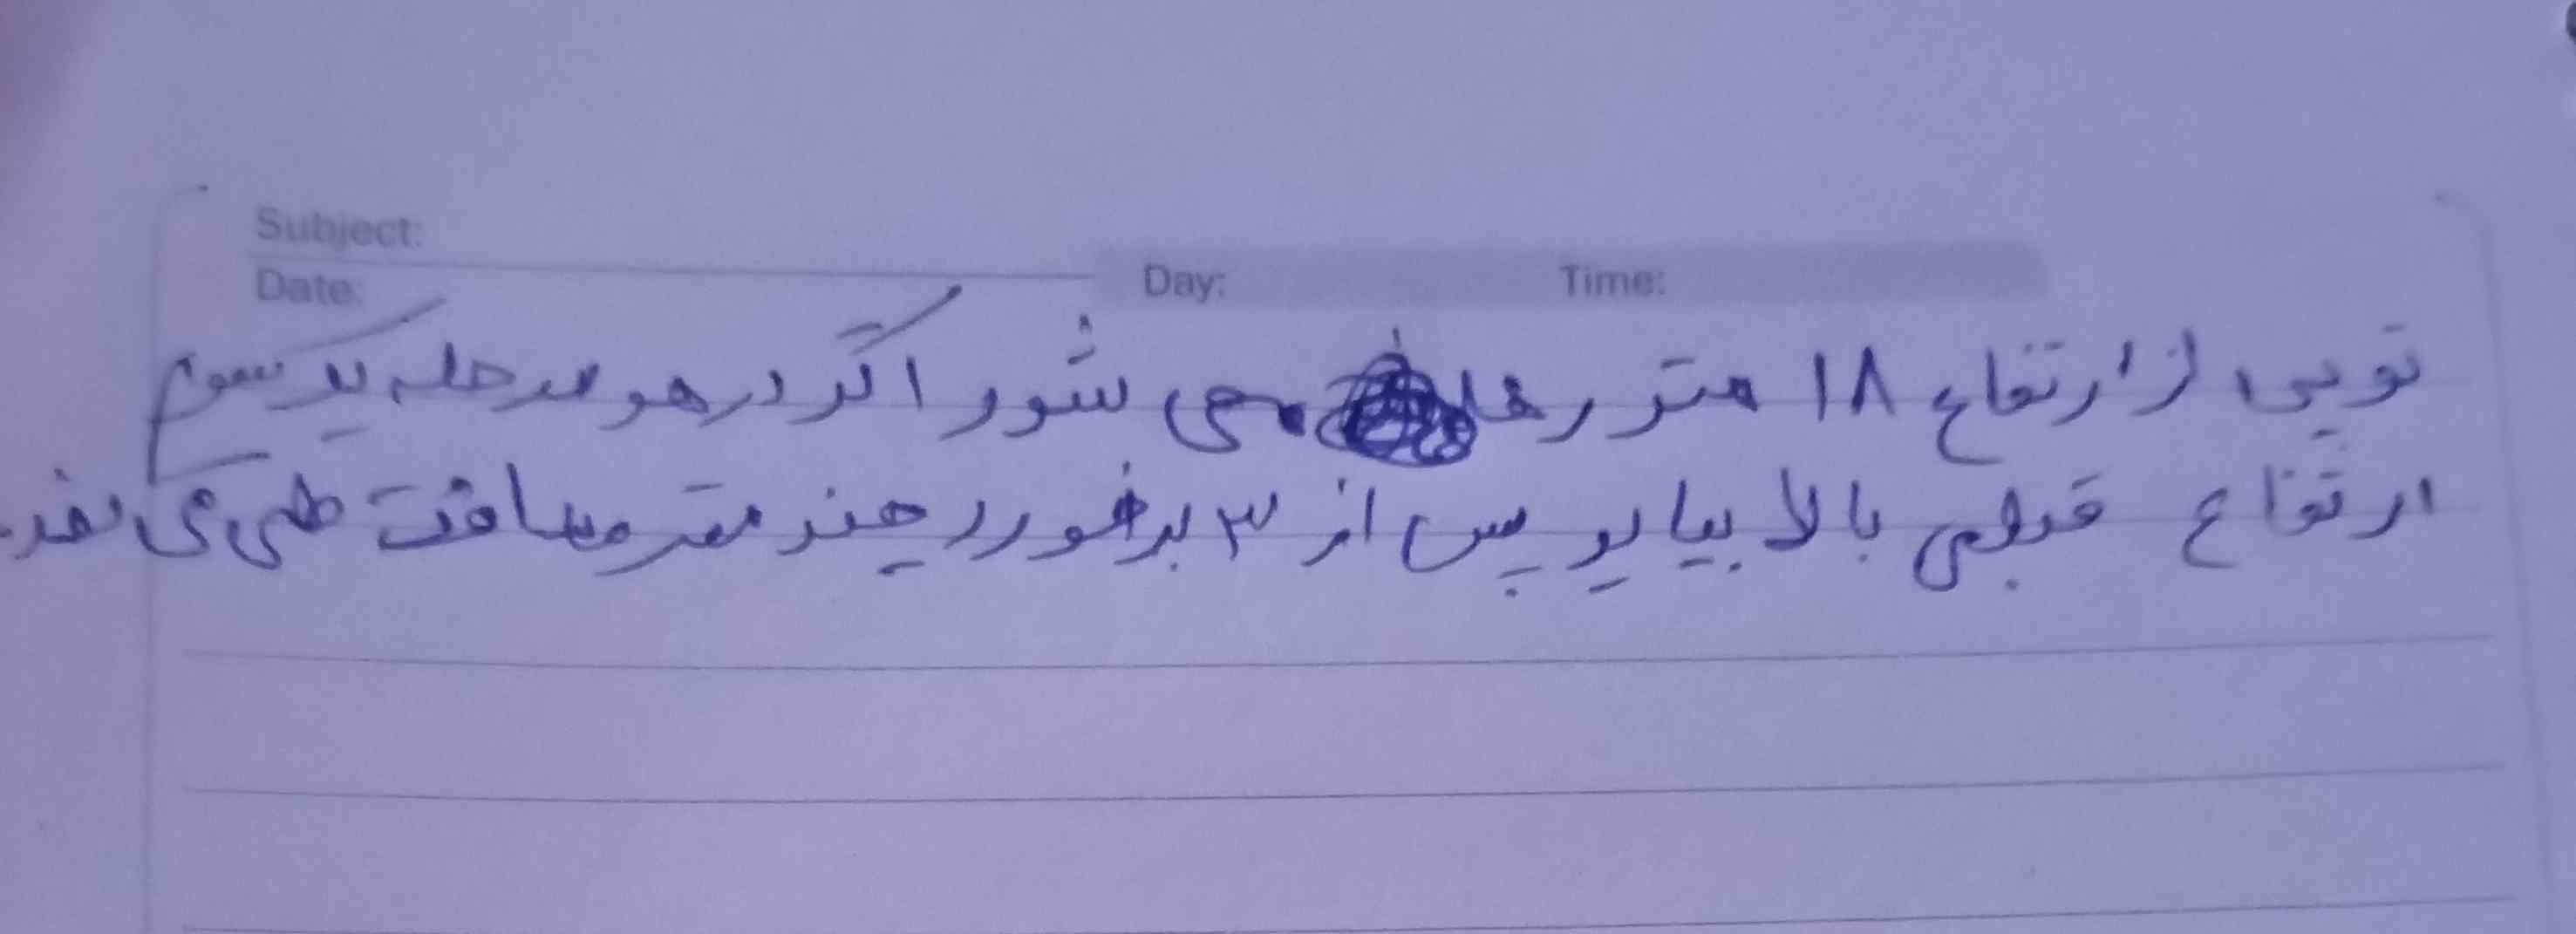 Subject:
Date: Day: Time:
توپی از ارتفاع ۱۸ متر رها می شود اگر در هر مرحله یک سوم
ارتفاع قبلی بالا بیاید پس از ۳ برخورد چند متر مسافت طی می کند.